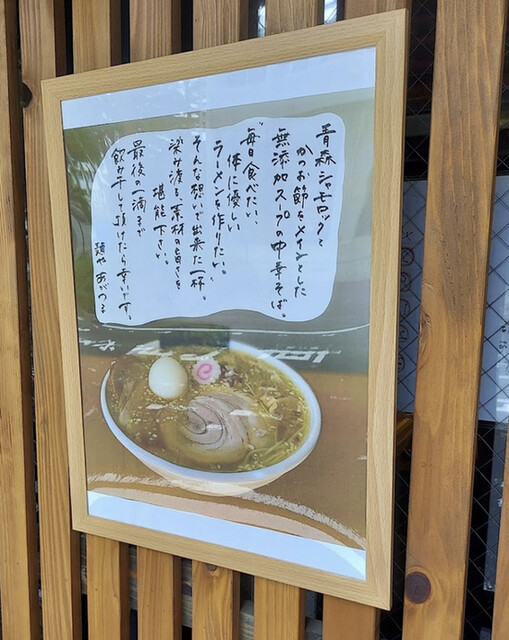 青森シャモロックと
かつお節をメインとした
無添加スープの中華そば。
毎日食べたい、
体に優しい
ラーメンを作りたい。
そんな想いで出来た一杯。
染み渡る、素材の旨さを
堪能下さい。
最後の一滴まで
飲み干して頂けたら幸いです。
麺や あがつま